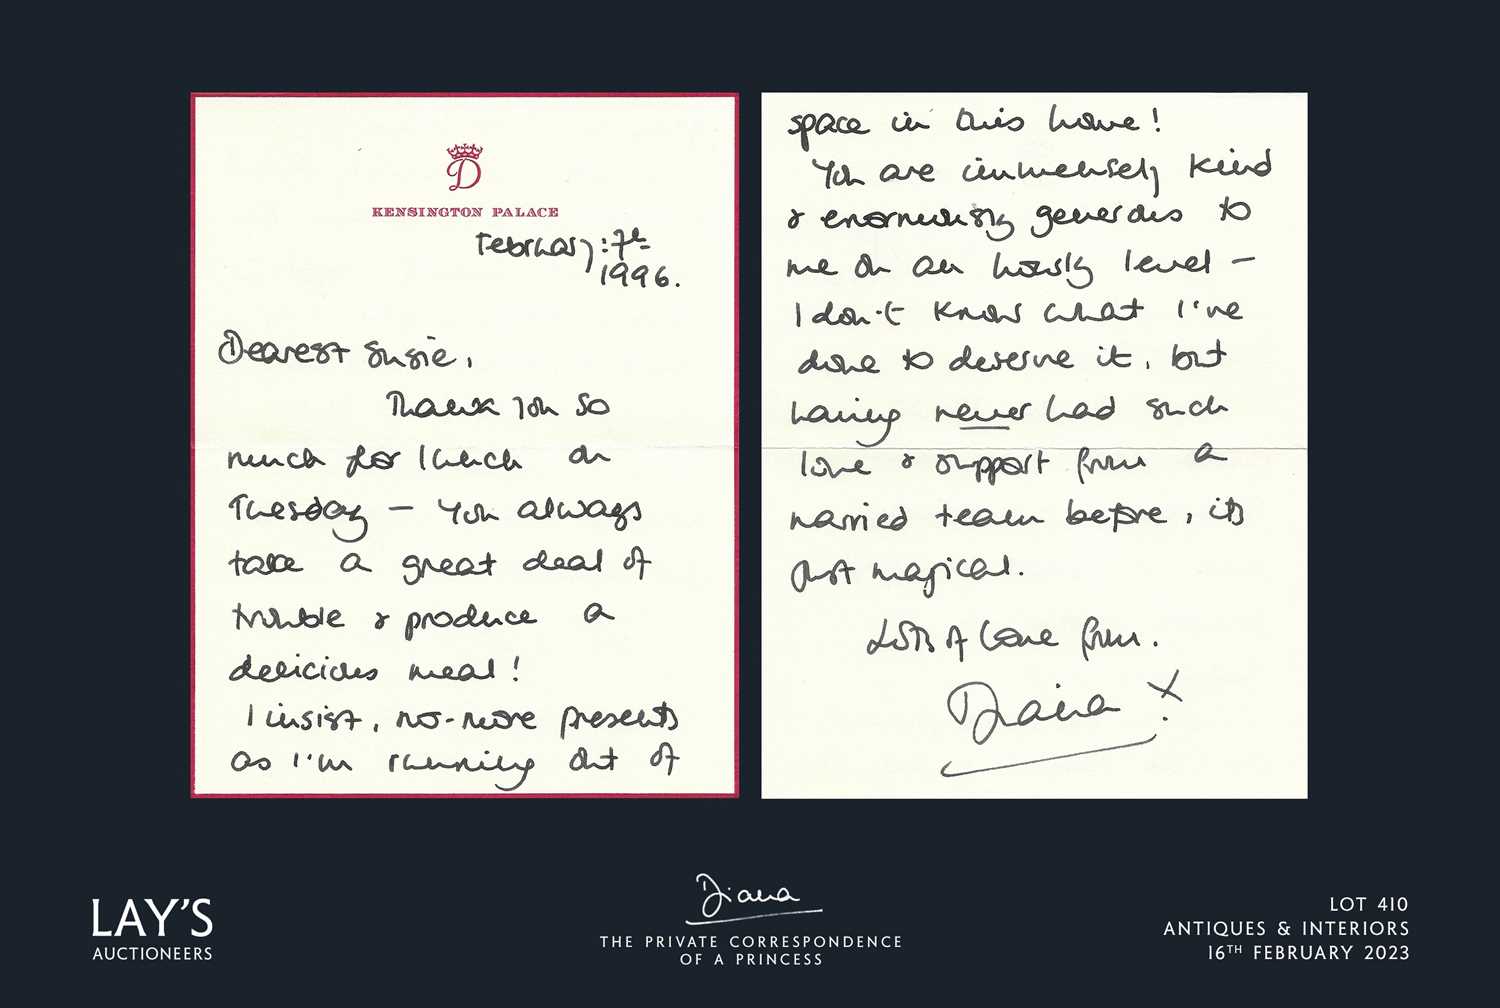 D
KENSINGTON PALACE
February: 7th
1996.
Dearest Susie,
Thank you so
much for lunch on
Tuesday – you always
take a great deal of
trouble & produce a
delicious meal!
I insist, no-more presents
as I'm running out of
space in this home!
You are immensely kind
& enormously generous to
me on an hourly level –
I don't know what I've
done to deserve it, but
having never had such
love & support from a
married team before, its
just magical.
Lots of love from.
Diana x
LAY'S
AUCTIONEERS
Diana
THE PRIVATE CORRESPONDENCE
OF A PRINCESS
LOT 410
ANTIQUES & INTERIORS
16TH FEBRUARY 2023